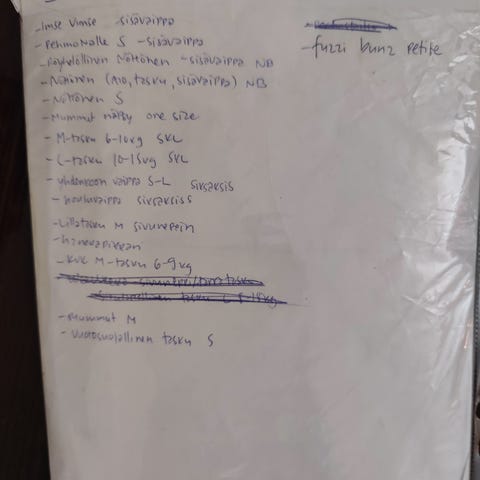 - Imse Vimse -sisävaippa
- PehmoNalle S -sisävaippa
- Pöyhölöllinen Nöttönen -sisävaippa NB
- Nöttönen (AIO, tasku, sisävaippa) NB
- Nöttönen S
- Mummut nalby one size
- M-tasku 6-10kg SKL
- L-tasku 10-15kg SKL
- yhdenkoon vaippa S-L siksaksis
- kouluvaippa siksaksiss
- Lillatasku M sivunepein
- KVK M-tasku 6-9kg
- Mummut M
- Vuotosuojallinen tasku S
- fuzzi bunz petite